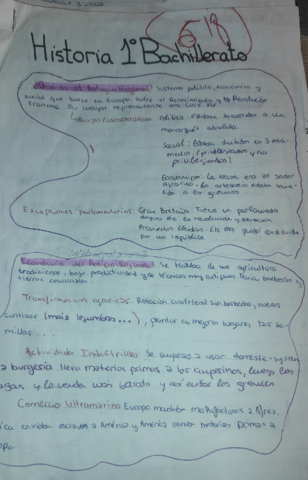 Historia 1º Bachillerato
¿Qué es el Antiguo Régimen? Sistema político, económico y
social que hubo en Europa entre el Renacimiento y la Revolución
Francesa. Su
Política: Estaban sometidos a una
monarquía absoluta.
Social: Estaba dividida en 3 esta
mentos (privilegiados y no
privilegiados)
Económico: La base era el sector
agrario. La artesanía estaba some
tida a los gremios.
Excepciones parlamentarias: Gran Bretaña: Tiene un parlamento
después de la revolución
Provincias Unidas: En
por una república
Economía del Antiguo Régimen: Se trataba de una agricultura
tradicional, baja productividad y de técnicas muy antiguas
tierras comunales.
Transformaciones agrarias: Rotación cuatrienal sin barbecho, nuevos
cultivos (maíz, legumbres...), plantar en mejores lugares las se
millas...
Actividades Industriales: Se empezó a usar domestic-system
a burgesía lleva materias primas a los campesinos, luego les
pagan y lo venden más barato y así evitar los gremios.
Comercio Ultramarino: Europa mandaba manufacturas a África,
esclavos a América y América materias primas a